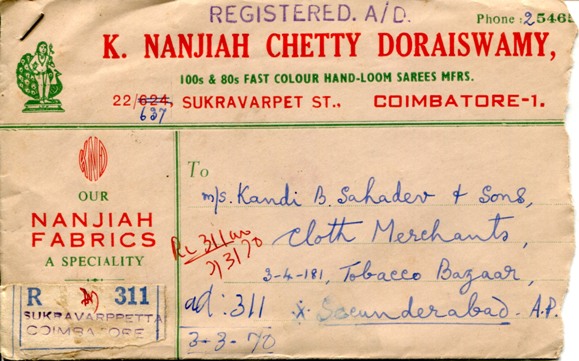 REGISTERED. A/D.
Phone : 25465
K. NANJIAH CHETTY DORAISWAMY,
100s & 80s FAST COLOUR HAND-LOOM SAREES MFRS.
22/624, SUKRAVARPET ST., COIMBATORE-1.
637
OUR
NANJIAH
FABRICS
A SPECIALITY
To
M/s. Kandi B. Sahadev & Sons,
Cloth Merchants,
3-4-181, Tobacco Bazaar,
Secunderabad. A.P.
311
3/3/70
R 311
SUKRAVARPPETTA
COIMBATORE
ad: 311
3-3-70